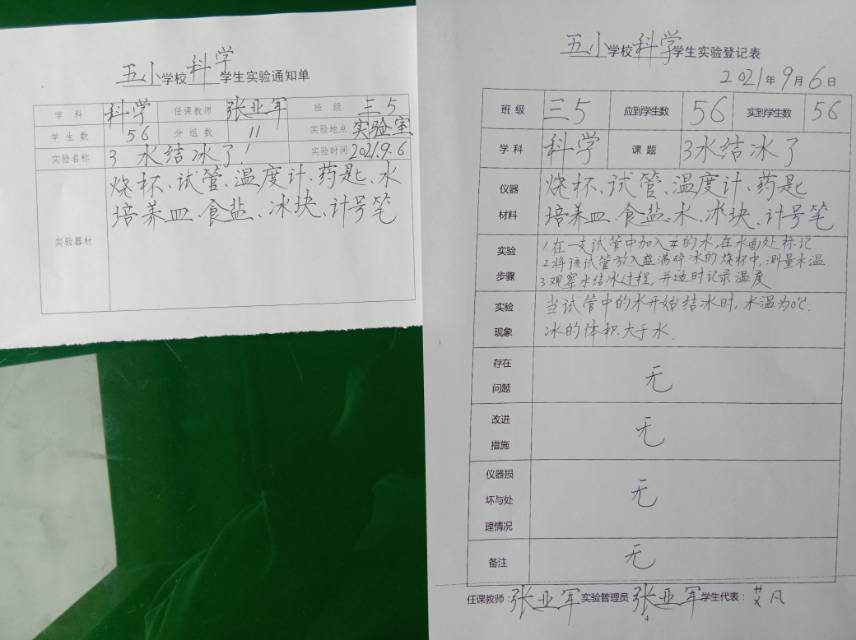 五小学校科学学生实验通知单
学科 科学 任课教师 张亚军 班级 三5
学生数 56 分组数 11 实验地点 实验室
实验名称 3 水结冰了! 实验时间 2021.9.6
实验器材 烧杯、试管、温度计、药匙、水
培养皿、食盐、冰块、计号笔
五小学校科学学生实验登记表
2021年9月6日
班级 三5 应到学生数 56 实到学生数 56
学科 科学 课题 3水结冰了
仪器材料 烧杯、试管、温度计、药匙
培养皿、食盐、水、冰块、计号笔
实验步骤 1在一支试管中加入的水,在水面处标记
2将该试管放入盛满碎冰的烧杯中,测量水温
3观察水结冰过程,并适时记录温度.
实验现象 当试管中的水开始结冰时,水温为0℃.
冰的体积大于水.
存在问题 无
改进措施 无
仪器损坏与处理情况 无
备注 无
任课教师:张亚军 实验管理员 张亚军 学生代表:艾凡